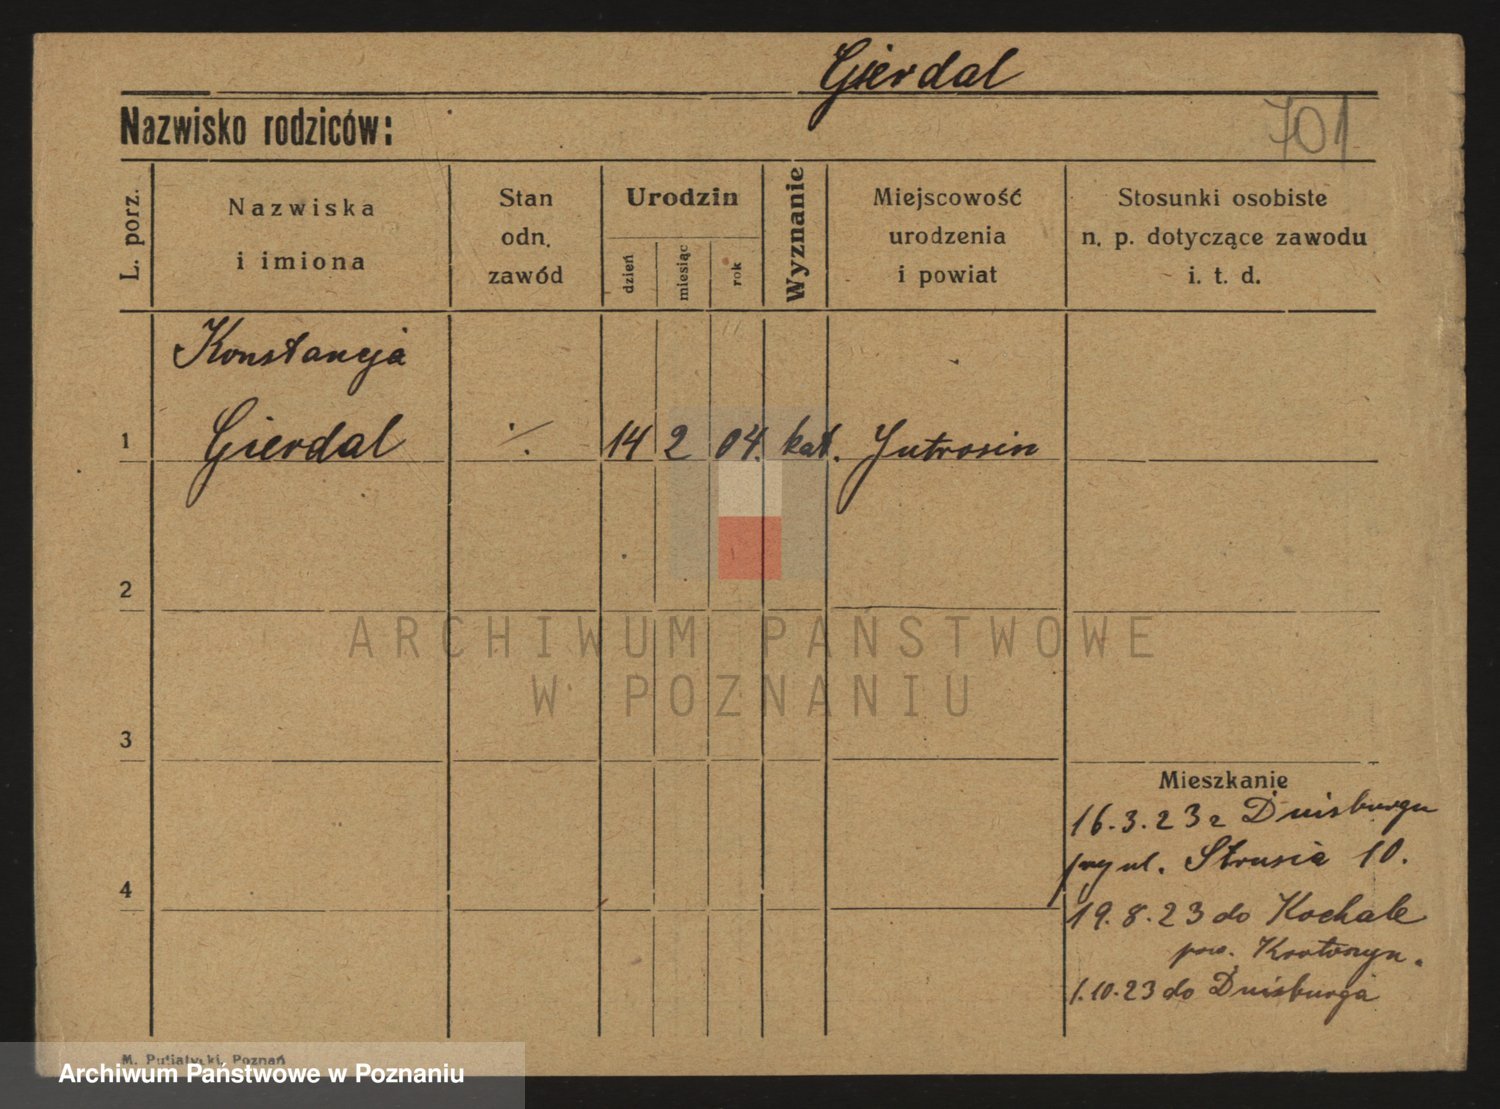 Gierdal
701
Nazwisko rodziców:
L. porz.
Nazwiska
i imiona
Stan
odn.
zawód
Urodzin
dzień
miesiąc
rok
Wyznanie
Miejscowość
urodzenia
i powiat
Stosunki osobiste
n. p. dotyczące zawodu
i. t. d.
Konstancja
1 Gierdal ./. 14 2 04. kat. Jutrosin
2
ARCHIWUM PAŃSTWOWE
W POZNANIU
3
Mieszkanie
16.3.23 z Duisburgu
przy ul. Strusia 10.
4
19.8.23 do Kochale
pow. Krotoszyn.
1.10.23 do Duisburga
M. Putiatycki, Poznań
Archiwum Państwowe w Poznaniu